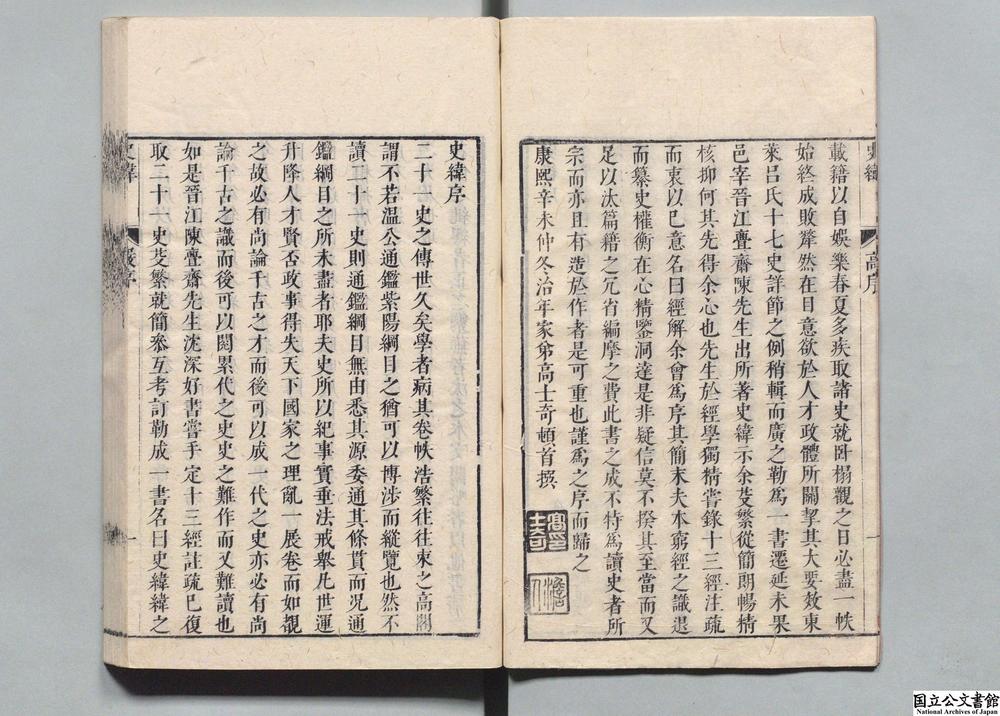 載籍以自娛樂春夏多疾取諸史就臥榻觀之日必盡一帙
始終成敗犖然在目意欲於人才政體所關挈其大要效東
萊呂氏十七史詳節之例稍輯而廣之勒爲一書遷延未果
邑宰晉江亹齋陳先生出所著史緯示余芟繁從簡朗暢精
核抑何其先得余心也先生於經學獨精嘗錄十三經注疏
而衷以已意名曰經解余曾爲序其簡末夫本窮經之識退
而纂史權衡在心精鑒洞達是非疑信莫不揆其至當而又
足以汰篇籍之冗省編摩之費此書之成不特爲讀史者所
宗而亦且有造於作者是可重也謹爲之序而歸之
康熙辛未仲冬治年家弟高士奇頓首撰
高士奇印
澹人
史緯
高序
一
史緯序
二十一史之傳世久矣學者病其卷帙浩繁往往束之高閣
謂不若温公通鑑紫陽綱目之猶可以博涉而縱覽也然不
讀二十一史則通鑑綱目無由悉其源委通其條貫而况通
鑑綱目之所未盡者耶夫史所以紀事實垂法戒舉凡世運
升降人才賢否政事得失天下國家之理亂一展卷而如覩
之故必有尚論千古之才而後可以成一代之史亦必有尚
論千古之識而後可以閱累代之史史之難作而又難讀也
如是晉江陳亹齋先生沈深好書嘗手定十三經註疏已復
取二十一史芟繁就簡叅互考訂勒成一書名曰史緯緯之
史緯
序
一
国立公文書館
National Archives of Japan